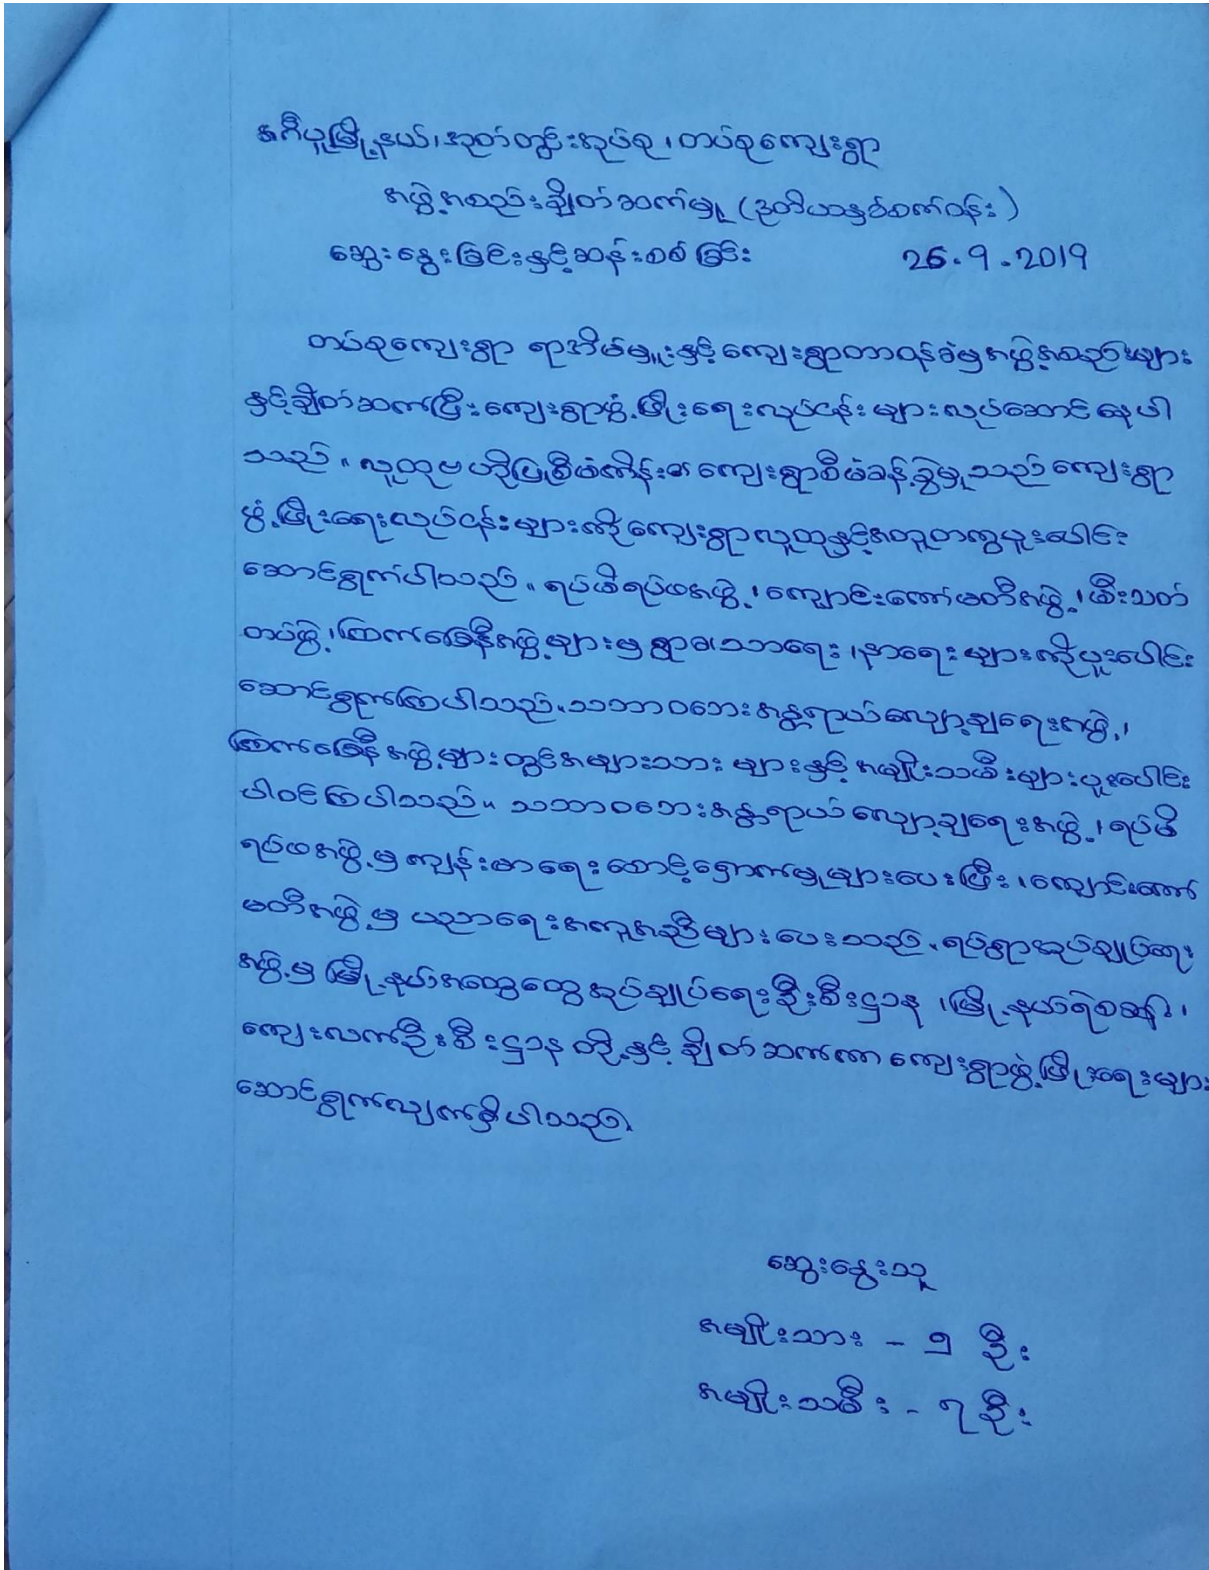 အင်္ဂပူမြို့နယ်၊ အုတ်တွင်းအုပ်စု၊ တပ်စုကျေးရွာ
အဖွဲ့အစည်းချိတ်ဆက်မှု (ဒုတိယနှစ်စက်ဝန်း)
ဆွေးနွေးခြင်းနှင့်ဆန်းစစ်ခြင်း 26.9.2019
တပ်စုကျေးရွာ ရာအိမ်မှူးနှင့် ကျေးရွာတာဝန်ခံမှ အဖွဲ့အစည်းများ
နှင့်ချိတ်ဆက်ပြီး ကျေးရွာဖွံ့ဖြိုးရေးလုပ်ငန်းများလုပ်ဆောင်နေပါ
သည်။ လူထုဗဟိုပြုစီမံကိန်း၏ ကျေးရွာစီမံခန့်ခွဲမှုသည် ကျေးရွာ
ဖွံ့ဖြိုးရေးလုပ်ငန်းများကို ကျေးရွာလူထုနှင့်အတူတကွပူးပေါင်း
ဆောင်ရွက်ပါသည်။ ရပ်မိရပ်ဖအဖွဲ့၊ ကျောင်းကော်မတီအဖွဲ့၊ မီးသတ်
တပ်ဖွဲ့၊ ကြက်ခြေနီအဖွဲ့များမှ ရွာ၏သာရေး၊ နာရေးများကိုပူးပေါင်း
ဆောင်ရွက်ကြပါသည်။ သဘာဝဘေးအန္တရာယ်လျော့ချရေးအဖွဲ့၊
ကြက်ခြေနီအဖွဲ့များတွင် အမျိုးသားများနှင့် အမျိုးသမီးများပူးပေါင်း
ပါဝင်ကြပါသည်။ သဘာဝဘေးအန္တရာယ်လျော့ချရေးအဖွဲ့၊ ရပ်မိ
ရပ်ဖအဖွဲ့မှ ကျန်းမာရေးစောင့်ရှောက်မှုများပေးပြီး၊ ကျောင်းကော်
မတီအဖွဲ့မှ ပညာရေးအကူအညီများပေးသည်။ ရပ်ရွာအုပ်ချုပ်ရေး
အဖွဲ့မှ မြို့နယ်အထွေထွေအုပ်ချုပ်ရေးဦးစီးဌာန၊ မြို့နယ်ရဲစခန်း၊
ကျေးလက်ဦးစီးဌာနတို့နှင့် ချိတ်ဆက်ကာ ကျေးရွာဖွံ့ဖြိုးရေးများ
ဆောင်ရွက်လျက်ရှိပါသည်။
ဆွေးနွေးသူ
အမျိုးသား - ၅ ဦး
အမျိုးသမီး - ၇ ဦး